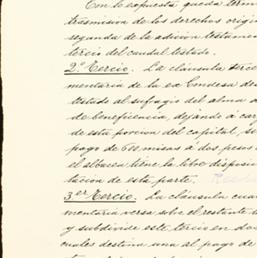 Con lo expuesto queda term
trasmision de los derechos origin
segunda de la adicion testamen
tercio del caudal testado.
2.º Tercio. La cláusula terce
mentaria de la ex Condesa des
testado al sufragio del alma
de beneficencia, dejando á car
de esta porcion del capital, se
pago de 600 misas á dos pesos
el albacea tiene la libre disposi
tacion de esta parte.
3er Tercio. La cláusula cua
mentaria versa sobre el restante
y subdivide este tercio en dos
cuales destina una al pago de